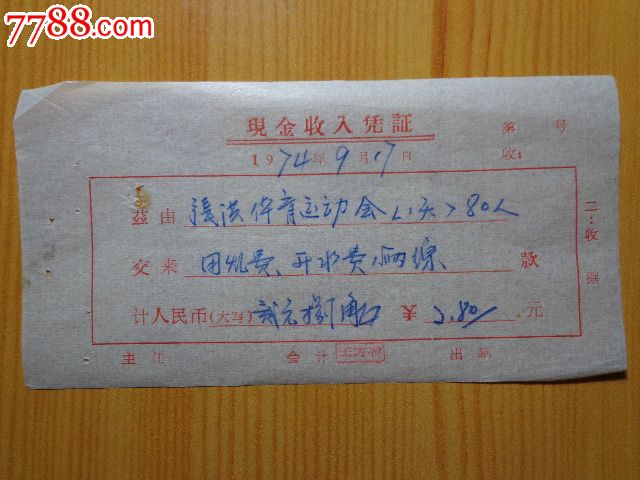 7788.com
現金收入凭証
第 号
1974年9月17日
收:
茲由 援洪体育运动会(1天)80人
交来 田凡费、开水费 款
计人民币(大写) 贰元捌角 ¥ 2.80 元
二:收据
主任 会计 出納